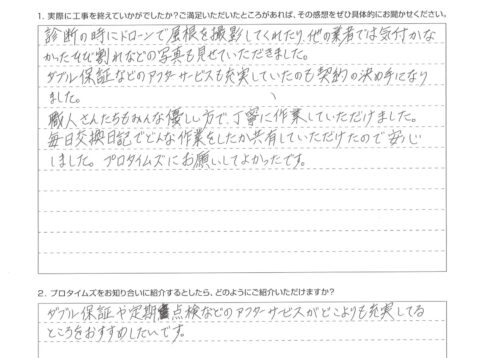 1. 実際に工事を終えていかがでしたか?ご満足いただいたところがあれば、その感想をぜひ具体的にお聞かせください。
診断の時にドローンで屋根を撮影してくれたり、他の業者では気付かな
かったひび割れなどの写真も見せていただきました。
ダブル保証などのアフターサービスも充実していたのも契約の決め手になり
ました。
職人さんたちもみんな優しい方で、丁寧に作業していただけました。
毎日交換日記でどんな作業をしたか共有していただけたので安心
しました。プロタイムズにお願いしてよかったです。
2. プロタイムズをお知り合いに紹介するとしたら、どのようにご紹介いただけますか?
ダブル保証や定期点検などのアフターサービスがどこよりも充実してる
ところをおすすめしたいです。